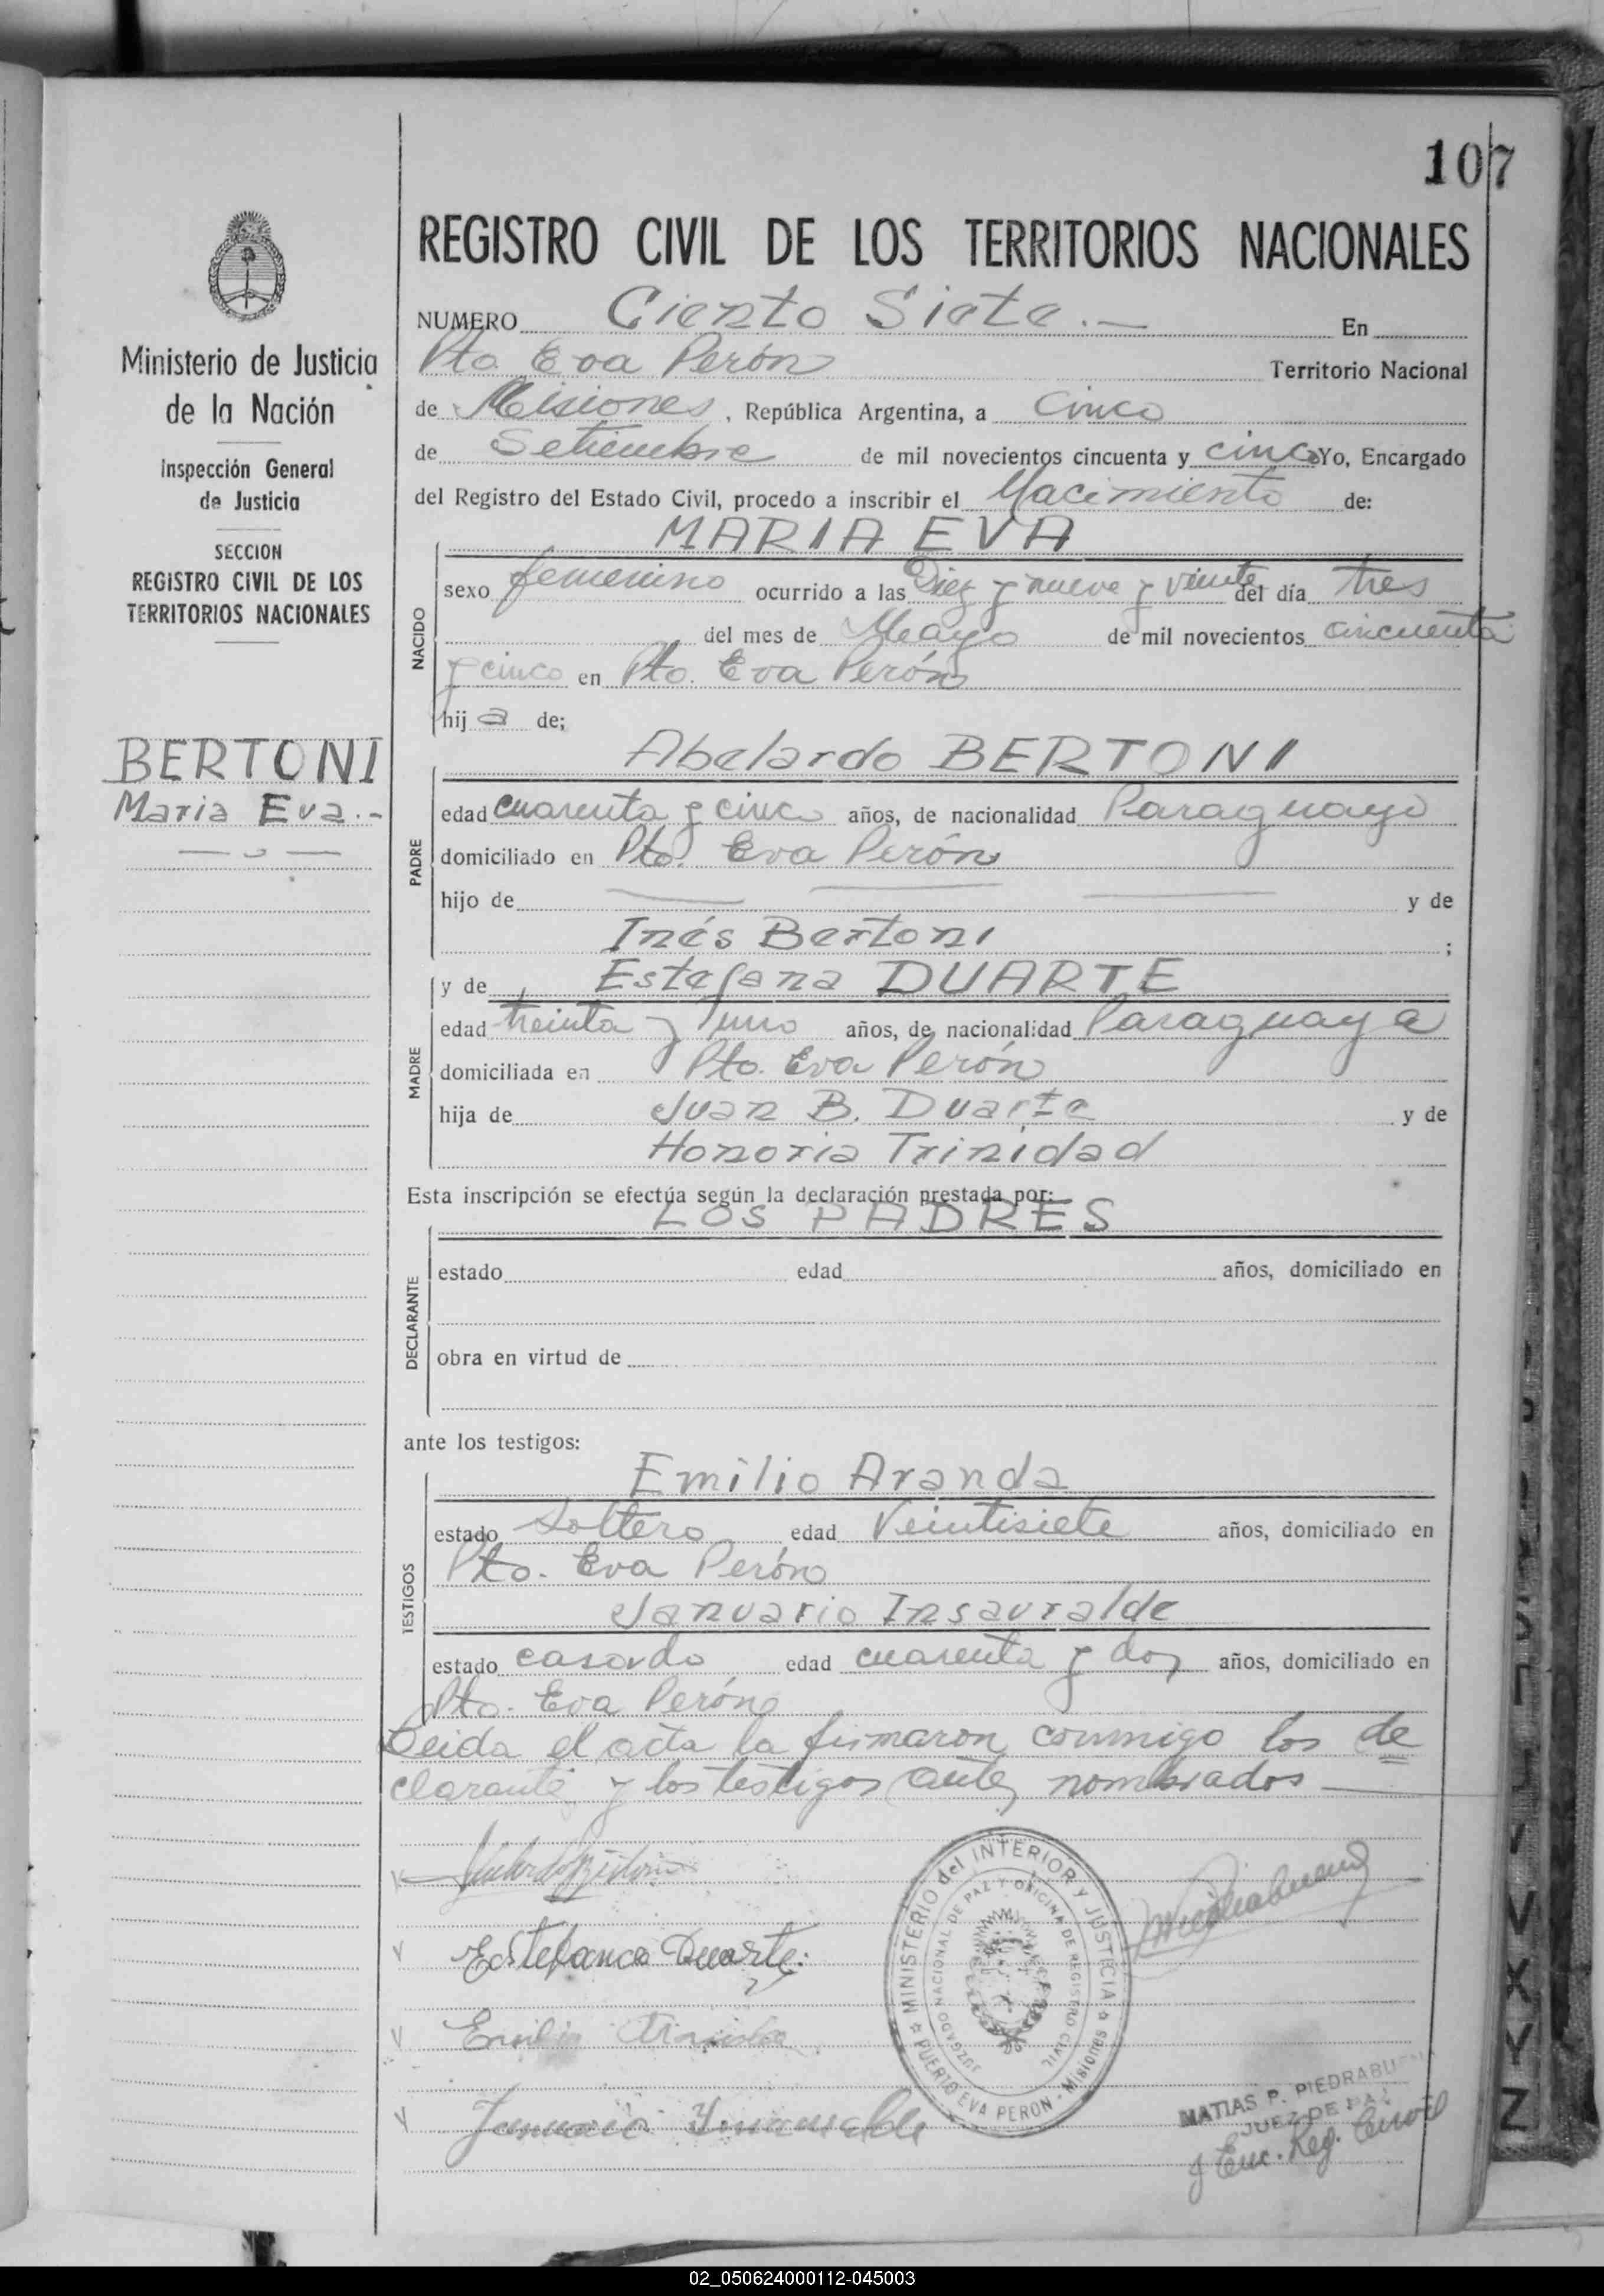 107
REGISTRO CIVIL DE LOS TERRITORIOS NACIONALES
Ministerio de Justicia
de la Nación
Inspección General
de Justicia
SECCION
REGISTRO CIVIL DE LOS
TERRITORIOS NACIONALES
BERTONI
Maria Eva.-
NUMERO Ciento Siete.- En
Pto. Eva Perón Territorio Nacional
de Misiones, República Argentina, a Cinco
de Setiembre de mil novecientos cincuenta y cinco Yo, Encargado
del Registro del Estado Civil, procedo a inscribir el Nacimiento de:
MARIA EVA
NACIDO
sexo femenino ocurrido a las Diez y nueve y veinte del día tres
del mes de Mayo de mil novecientos cincuenta
y cinco en Pto. Eva Perón
hij a de;
Abelardo BERTONI
PADRE
edad cuarenta y cinco años, de nacionalidad Paraguayo
domiciliado en Pto. Eva Perón
hijo de y de
Inés Bertoni ;
y de Estefana DUARTE
MADRE
edad treinta y uno años, de nacionalidad Paraguaya
domiciliada en Pto. Eva Perón
hija de Juan B. Duarte y de
Honoria Trinidad
Esta inscripción se efectúa según la declaración prestada por:
LOS PADRES
DECLARANTE
estado edad años, domiciliado en
obra en virtud de
ante los testigos:
Emilio Aranda
TESTIGOS
estado Soltero edad Veintisiete años, domiciliado en
Pto. Eva Perón
Januario Insauralde
estado casado edad cuarenta y dos años, domiciliado en
Pto. Eva Perón
Leida el acta la firmaron conmigo los de
clarante y los testigos antes nombrados
Estefanca Duarte.
Emilio Aranda
Januario Insauralde
MINISTERIO del INTERIOR Y JUSTICIA
JUZGADO NACIONAL DE PAZ Y OFICINA DE REGISTRO CIVIL
PUERTO EVA PERON - Misiones
MATIAS P. PIEDRABUENA
JUEZ DE PAZ
y Enc. Reg. Civil
V
X
Y
Z
02_050624000112-045003